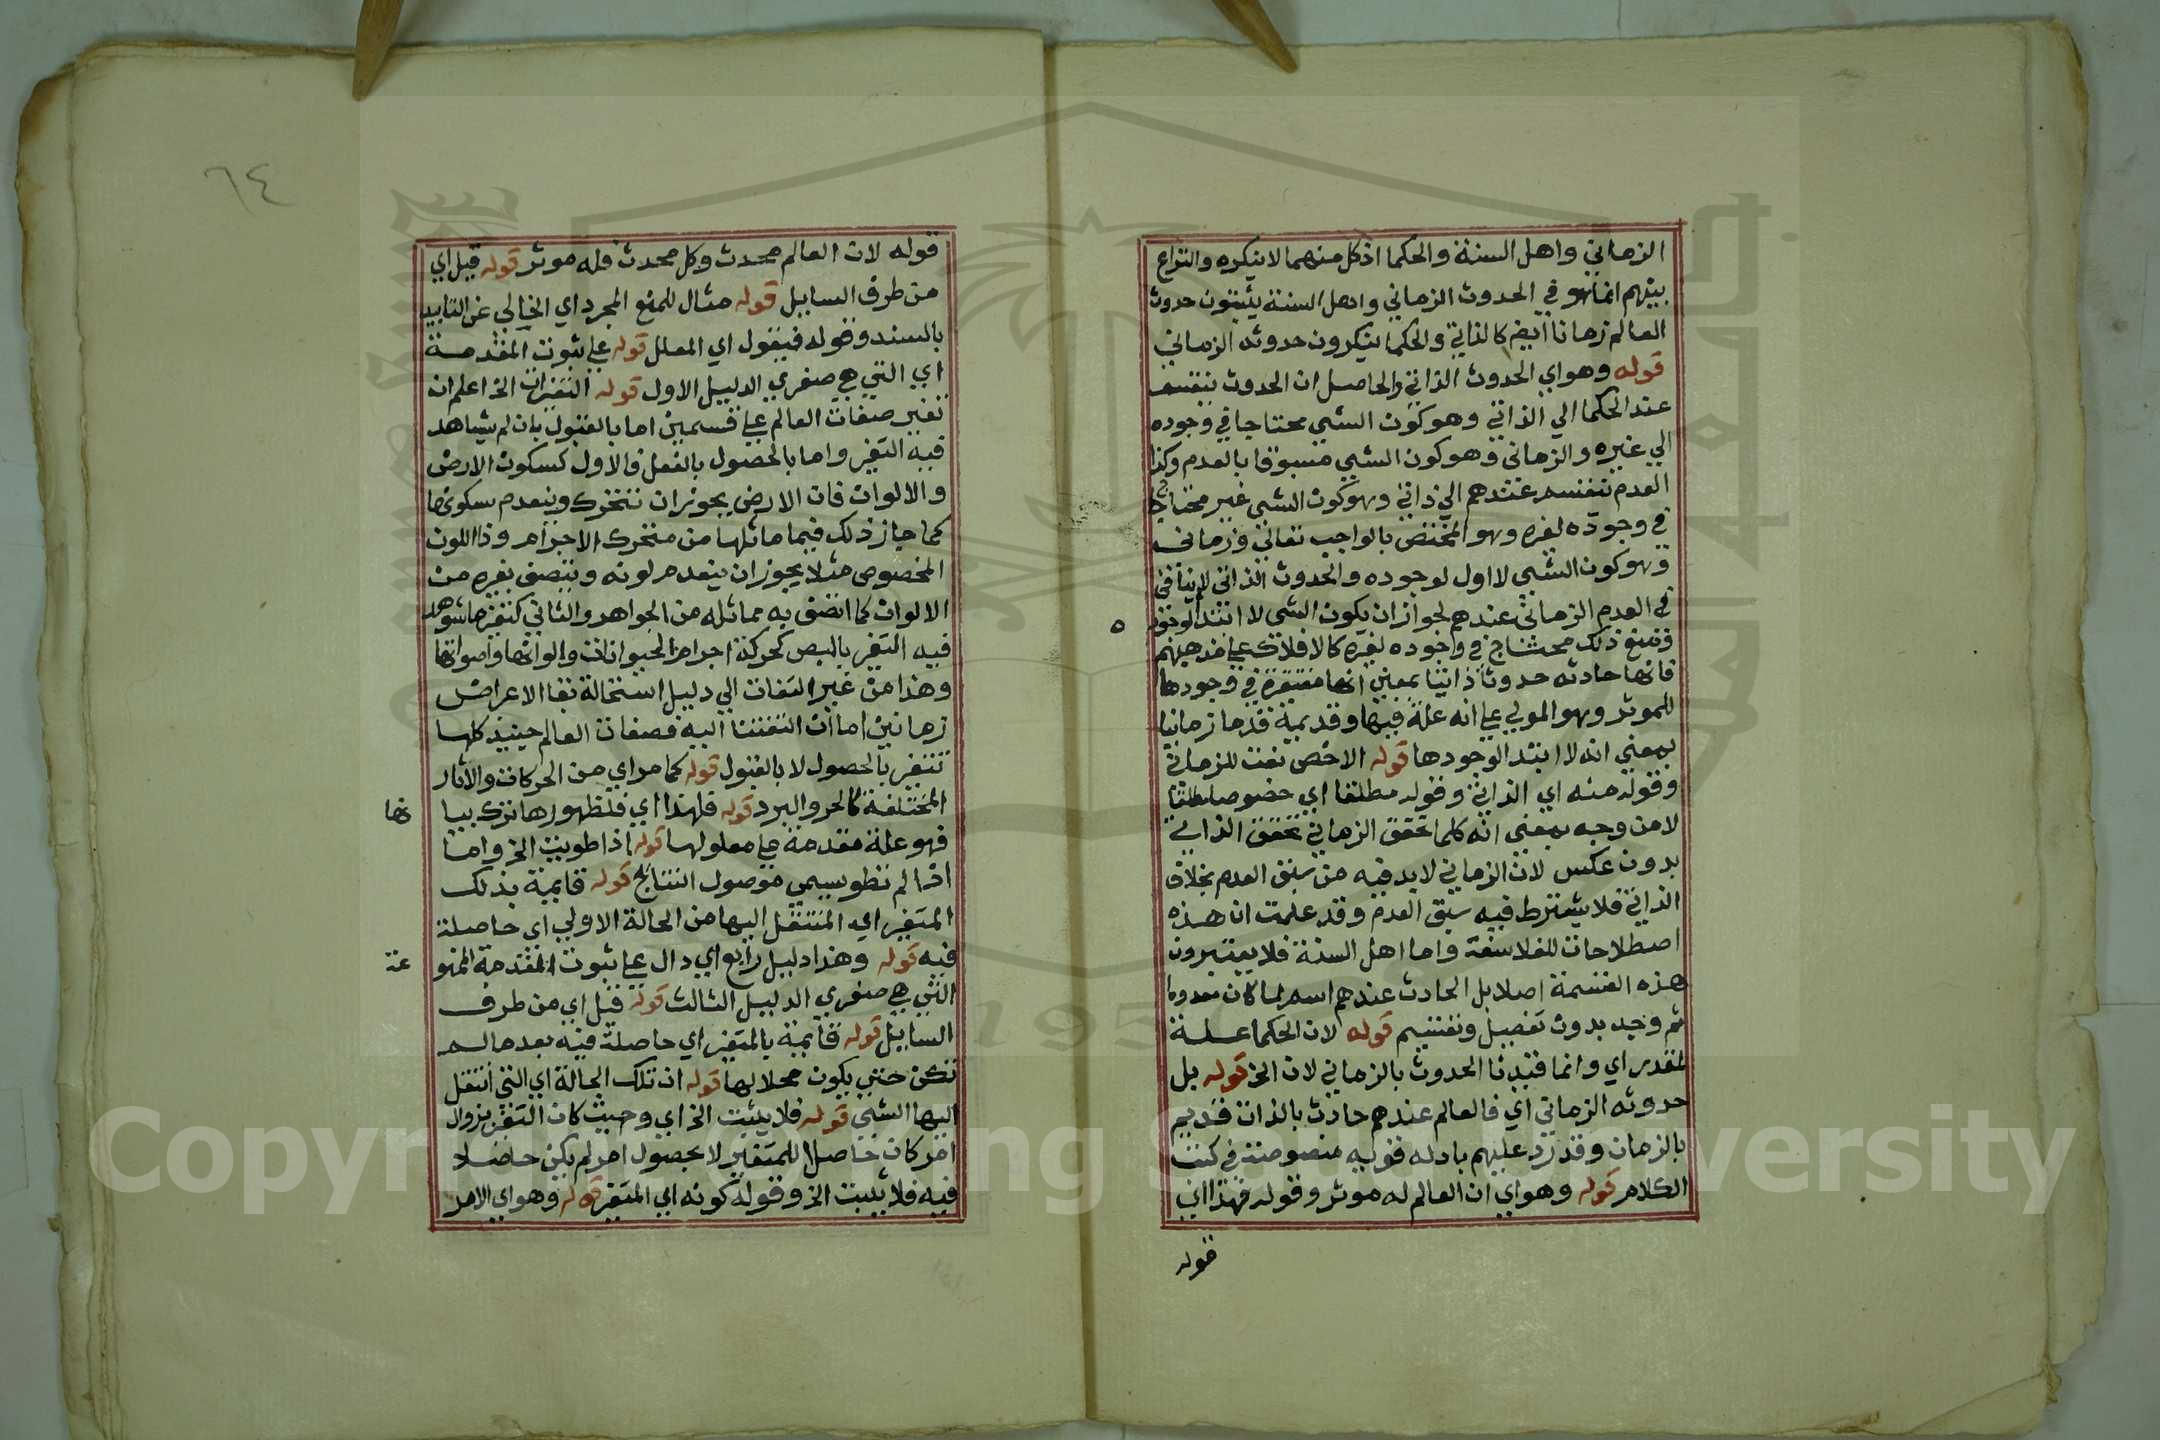 الزماني واهل السنة والحكما اذ كل منهما لا ينكره والنزاع
بينهم انما هو في الحدوث الزماني واهل السنة يثبتون حدوث
العالم زمانا ايضا كالذاتي والحكما ينكرون حدوثه الزماني
قوله وهو اي الحدوث الذاتي والحاصل ان الحدوث ينقسم
عند الحكما الي الذاتي وهو كون الشي محتاجا في وجوده
الي غيره والزماني وهو كون الشي مسبوقا بالعدم وكذا
القدم ينقسم عندهم الي ذاتي وهو كون الشي غير محتاج
في وجوده لغيره وهو المختص بالواجب تعالي وزماني
وهو كون الشي لا اول لوجوده والحدوث الذاتي لا ينافي
في القدم الزماني عندهم لجواز ان يكون الشي لا ابتدا لوجوده
ومع ذلك محتاج في وجوده لغيره كالافلاك علي مذهبهم
فانها حادثه حدوثا ذاتيا بمعني انها مفتقرة في وجودها
للموثر وهو المولي علي انه علة فيها وقديمة قدما زمانيا
بمعني انه لا ابتدا لوجودها قوله الاخص نعت للزماني
وقوله منه اي الذاتي وقوله مطلقا اي خصوصا مطلقا
لا من وجه بمعني انه كلما تحقق الزماني تحقق الذاتي
بدون عكس لان الزماني لا بد فيه من سبق العدم بخلاف
الذاتي فلا يشترط فيه سبق العدم وقد علمت ان هذه
اصطلاحات للفلاسفة واما اهل السنة فلا يعتبرون
هذه القسمة اصلا بل الحادث عندهم اسم لما كان معدوما
ثم وجد بدون تفصيل وتقسيم قوله لان الحكما علة
لمقدر اي وانما قيدنا الحدوث بالزماني لان الخ قوله بل
حدوثه الزماني اي فالعالم عندهم حادث بالذات قديم
بالزمان وقد رد عليهم بادله قويه منصوصة في كتب
الكلام قوله وهو اي ان العالم له موثر وقوله فهذا اي
قوله
٦٤
قوله لان العالم محدث وكل محدث فله موثر قوله قيل اي
من طرف السايل قوله مثال للمنع المجرد اي الخالي عن التاييد
بالسند وقوله فيقول اي المعلل قوله علي ثبوت المقدمة
اي التي هي صغري الدليل الاول قوله التغيرات الخ اعلم ان
تغير صفات العالم علي قسمين اما بالقبول بان لم يشاهد
فيه التغير واما بالحصول بالفعل فالاول كسكون الارض
والالوان فان الارض يجوز ان تتحرك وينعدم سكونها
كما جاز ذلك فيما ماثلها من متحرك الاجرام وذا اللون
المخصوص مثلا يجوز ان ينعدم لونه ويتصف بغيره من
الالوان كما اتصف به مماثله من الجواهر والثاني كتغير ما شوهد
فيه التغير بالبصر كحركة اجرام الحيوانات والوانها واصواتها
وهذا من غير التفات الي دليل استحالة بقا الاعراض
زمانين اما ان التفتنا اليه فصفات العالم حينيذ كلها
تتغير بالحصول لا بالقبول قوله كما مر اي من الحركات والاثار
المختلفة كالحر والبرد قوله فلهذا اي فلظهورها ترك بيا
نها
فهو علة مقدمة علي معلولها قوله اذا طويت الخ واما
اذا لم تطو سمي موصول النتايج قوله قايمة بذلك
المتغير اي المنتقل اليها من الحالة الاولي اي حاصلة
فيه قوله وهذا دليل رابع اي دال علي ثبوت المقدمة الممنو
عة
التي هي صغري الدليل الثالث قوله قيل اي من طرف
السايل قوله قايمة بالمتغير اي حاصلة فيه بعد ما لم
تكن حتي يكون محلا لها قوله ان تلك الحالة اي التي انتقل
اليها الشي قوله فلا يثبت الخ اي وحيث كان التغير بزوال
امر كان حاصلا للمتغير لا بحصول امر لم يكن حاصلا
فيه فلا يثبت الخ وقوله كونه اي المتغير قوله وهو اي الامر
Copyright © King Saud University
1957